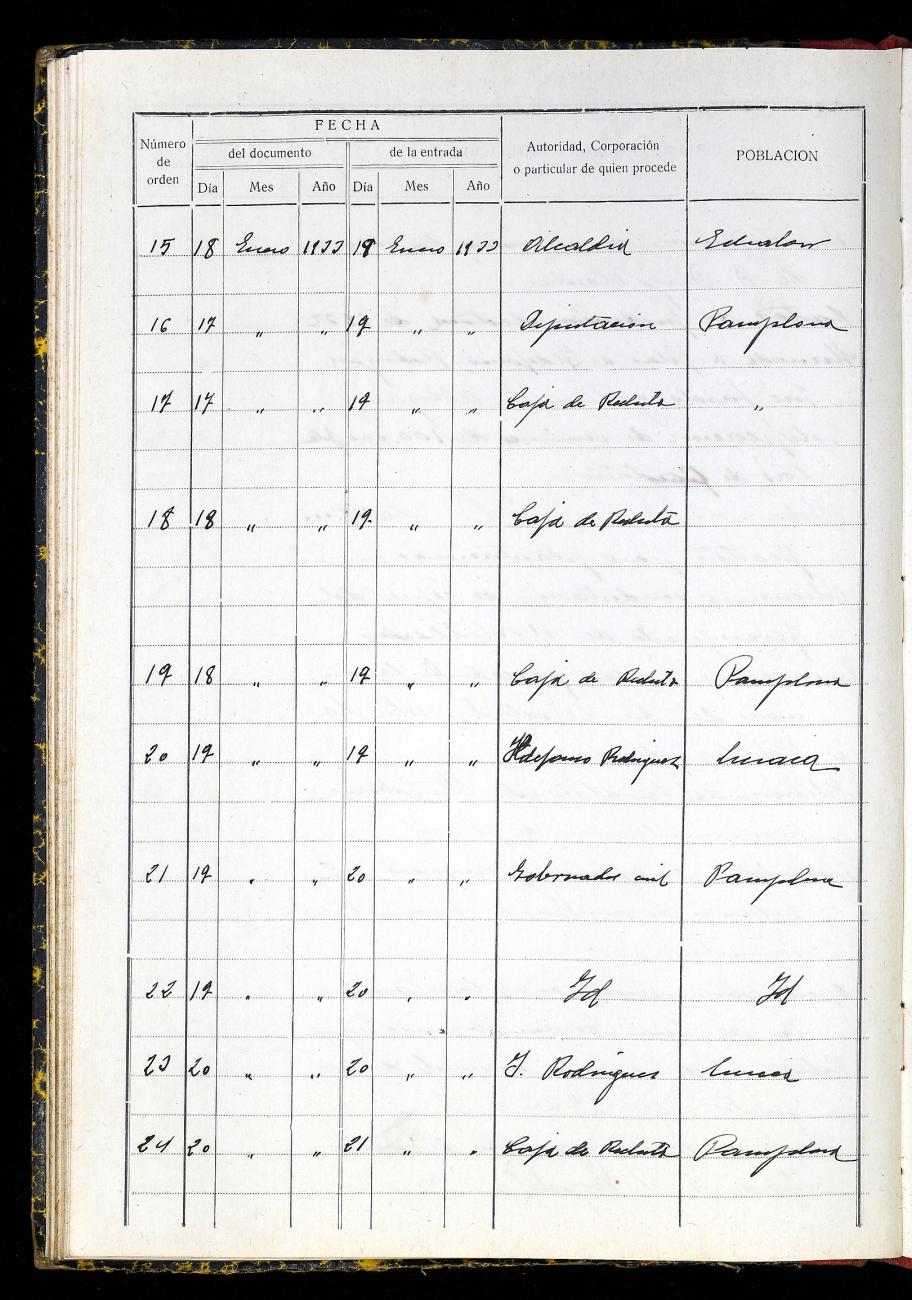 FECHA
Número de orden | del documento | de la entrada | Autoridad, Corporación o particular de quien procede | POBLACION
Día | Mes | Año | Día | Mes | Año
15 18 Enero 1933 18 Enero 1933 Alcaldia
16 17 " " 19 " " Diputación Pamplona
17 17 " " 19 " " Caja de Recluta "
18 18 " " 19 " " Caja de Recluta
19 18 " " 19 " " Caja de Recluta Pamplona
20 19 " " 19 " " Ildefonso Rodriguez
21 19 " " 20 " " Gobernador civil Pamplona
22 19 " " 20 " " Id Id
23 20 " " 20 " " I. Rodriguez
24 20 " " 21 " " Caja de Recluta Pamplona